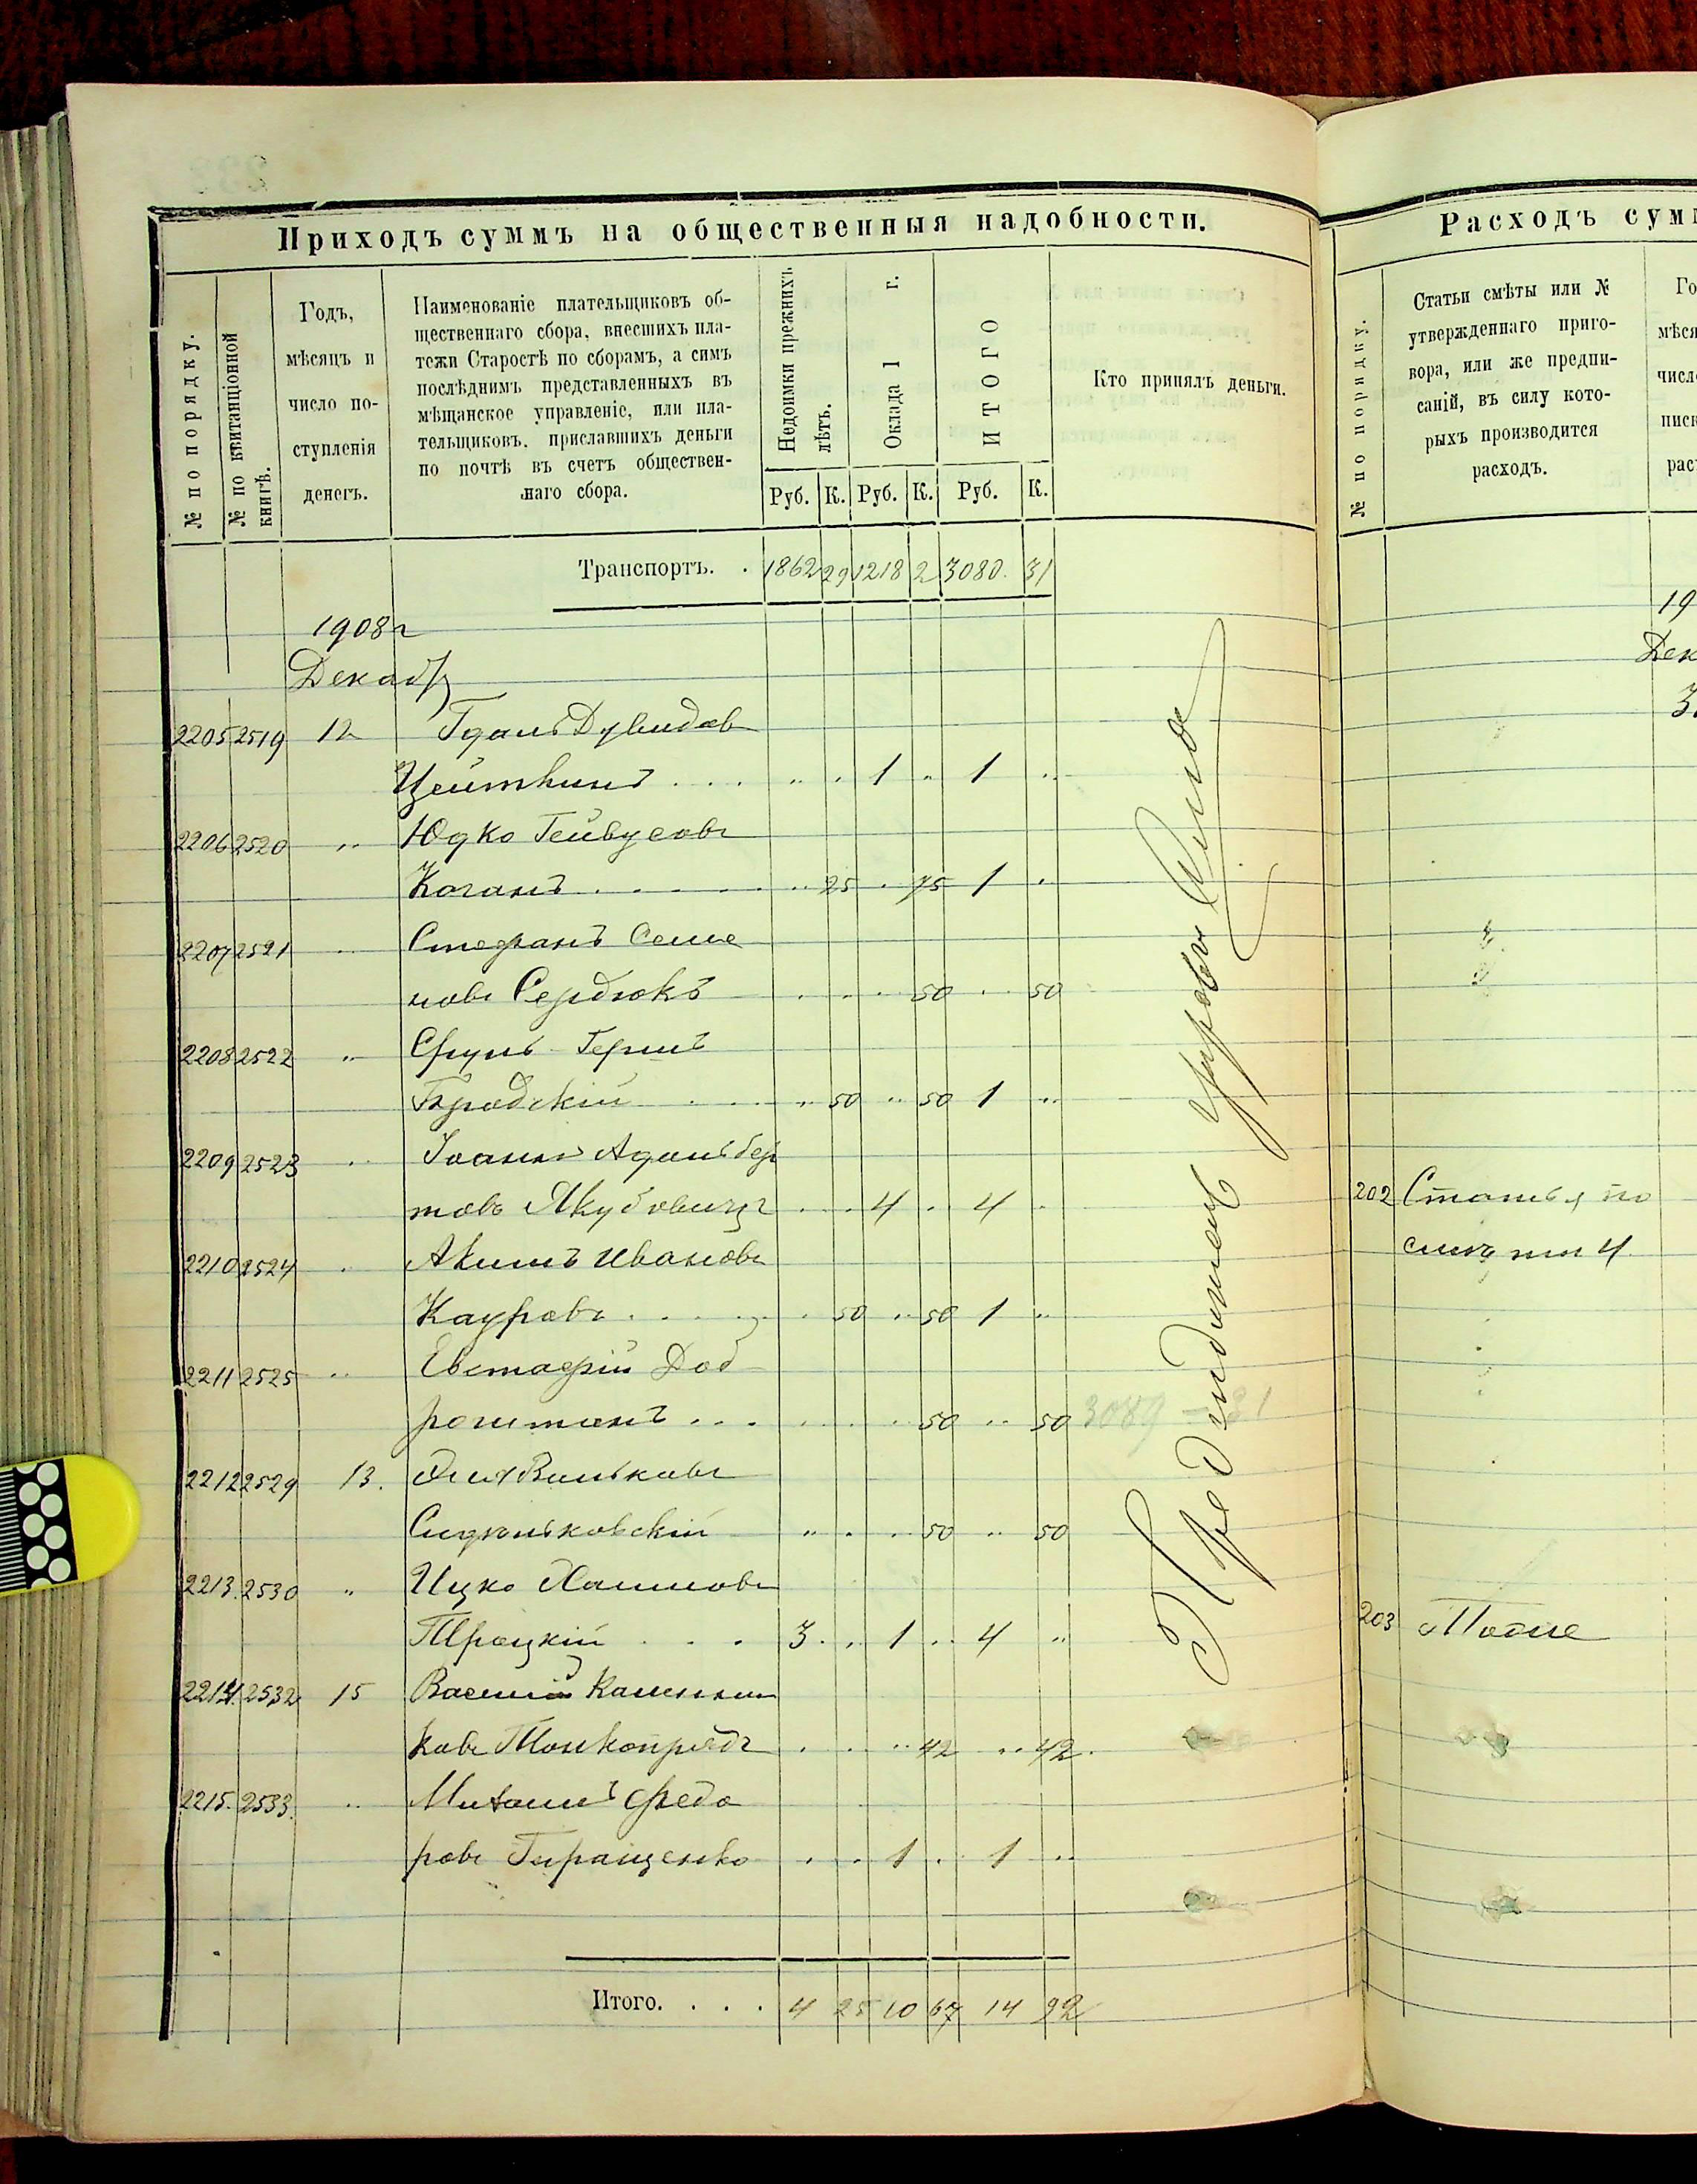 Приходъ суммъ на общественныя надобности.
№ по порядку.
№ по квитанціонной книгѣ.
Годъ,
мѣсяцъ и
число по-
ступленія
денегъ.
Наименованіе плательщиковъ об-
щественнаго сбора, внесшихъ пла-
тежи Старостѣ по сборамъ, а симъ
послѣднимъ представленныхъ въ
мѣщанское управленіе, или пла-
тельщиковъ, приславшихъ деньги
по почтѣ въ счетъ обществен-
наго сбора.
Недоимки прежнихъ лѣтъ.
Оклада 1 г.
ИТОГО
Кто принялъ деньги.
Руб. К. Руб. К. Руб. К.
Транспортъ. . 1862 29 1218 2 3080. 31
1908 г
Декабр
2205 2519 12
Цейткинъ . . . . " . 1 " 1 "
2206 2520 " Юдко
Коганъ . . . . . " 25 . 75 1 "
2207 2521 " Стефанъ Семе
новъ Сердюкъ . . . 50 . 50
2208 2522 " Сруль Гершъ
Бродскій . . . " 50 " 50 1 "
2209 2523 "
товъ Якубовичъ . . 4 . 4 .
2210 2524 . Акимъ Ивановъ
Кауровъ . . . . . 50 " 50 1 "
2211 2525 " Евстафій Доб
рогитанъ . . . . . . 50 " 50 3089 – 31
2212 2529 13.
" . . 50 " 50
2213 2530 " Ицко Хаимовъ
Троцкій . . . 3 . . 1 . . 4 "
2214 2532 15 Василій
ковъ Тонкопрядъ . . . 42 " 42.
2215. 2533. " Михаилъ Федо
ровъ Геращенко . . 1 . 1 "
Итого. . . . 4 25 10 67 14 92
Расходъ сумм
№ по порядку.
Статьи смѣты или №
утвержденнаго приго-
вора, или же предпи-
саній, въ силу кото-
рыхъ производится
расходъ.
Го
мѣся
числ
писк
рас
19
Дек
3
202 Статья по
смѣтѣ 4.
203 Тоже